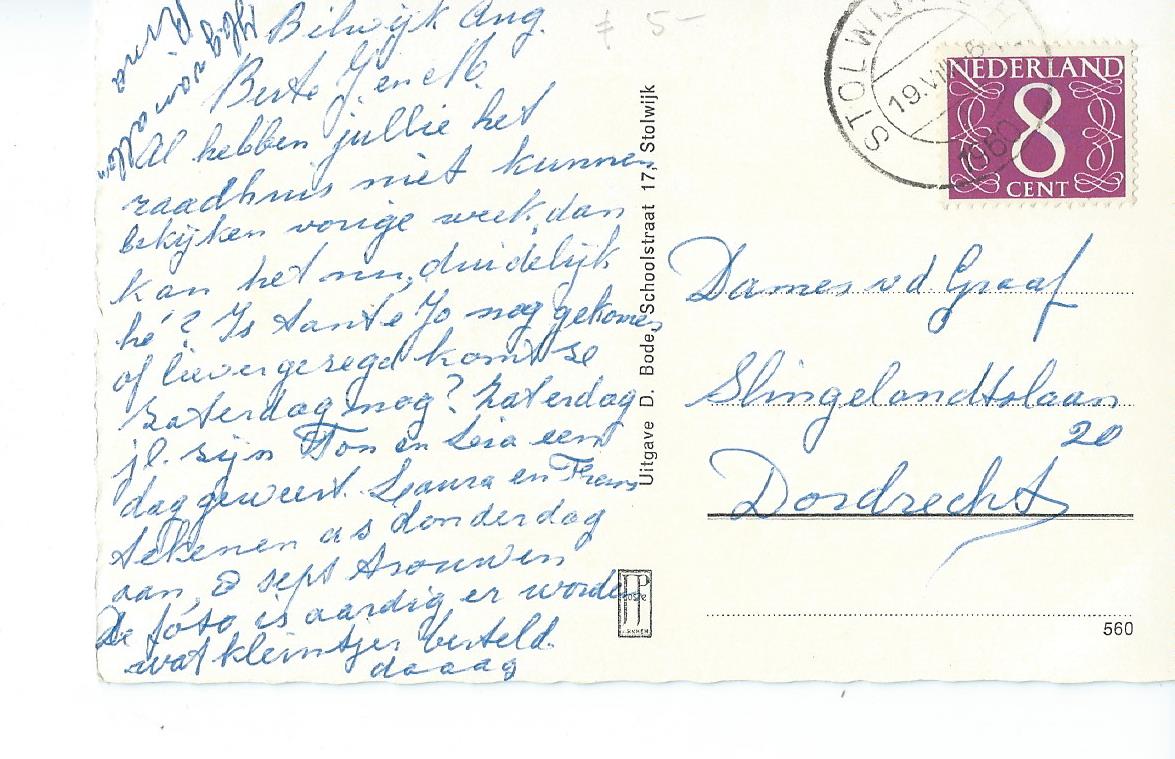 Bilwijk Aug.
Beste J en M.
Al hebben jullie het
raadhuis niet kunnen
bekijken vorige week, dan
kan het nu, duidelijk
hé? Is tante Jo nog gekomen
of liever gezegd komt ze
zaterdag nog? Zaterdag
jl. zijn Ton en Leia een
dag geweest. Laura en Frans
tekenen as donderdag
aan, 8 sept trouwen
De foto is aardig er worden
wat kleintjes besteld.
daaag
voor allen
Uitgave D. Bode, Schoolstraat 17, Stolwijk
₤ 5-
STOLWIJK
19.VIII
1960
NEDERLAND
8
CENT
Dames vd. Graaf
Slingelandtslaan
20
Dordrecht
JP
560